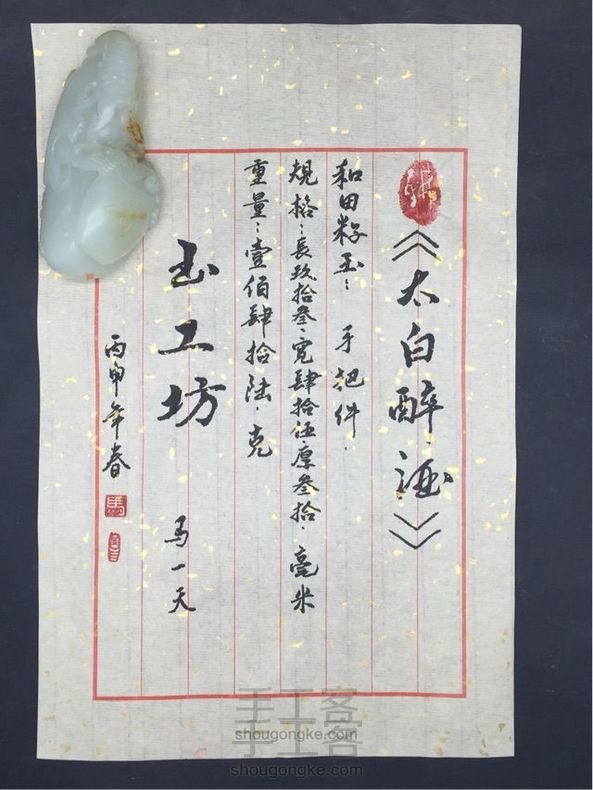 《太白醉酒》
和田籽玉：手把件.
規格：長玖拾叁.寬肆拾伍.厚叁拾.毫米
重量：壹佰肆拾陆.克
玉工坊 马一天
丙申年春
馬
手工客
shougongke.com
手工客
shougongke.com